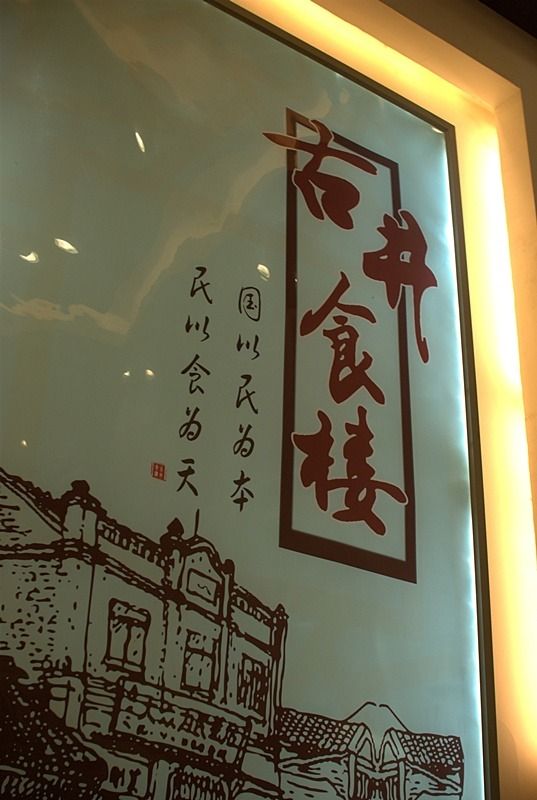 古井食楼
国以民为本
民以食为天